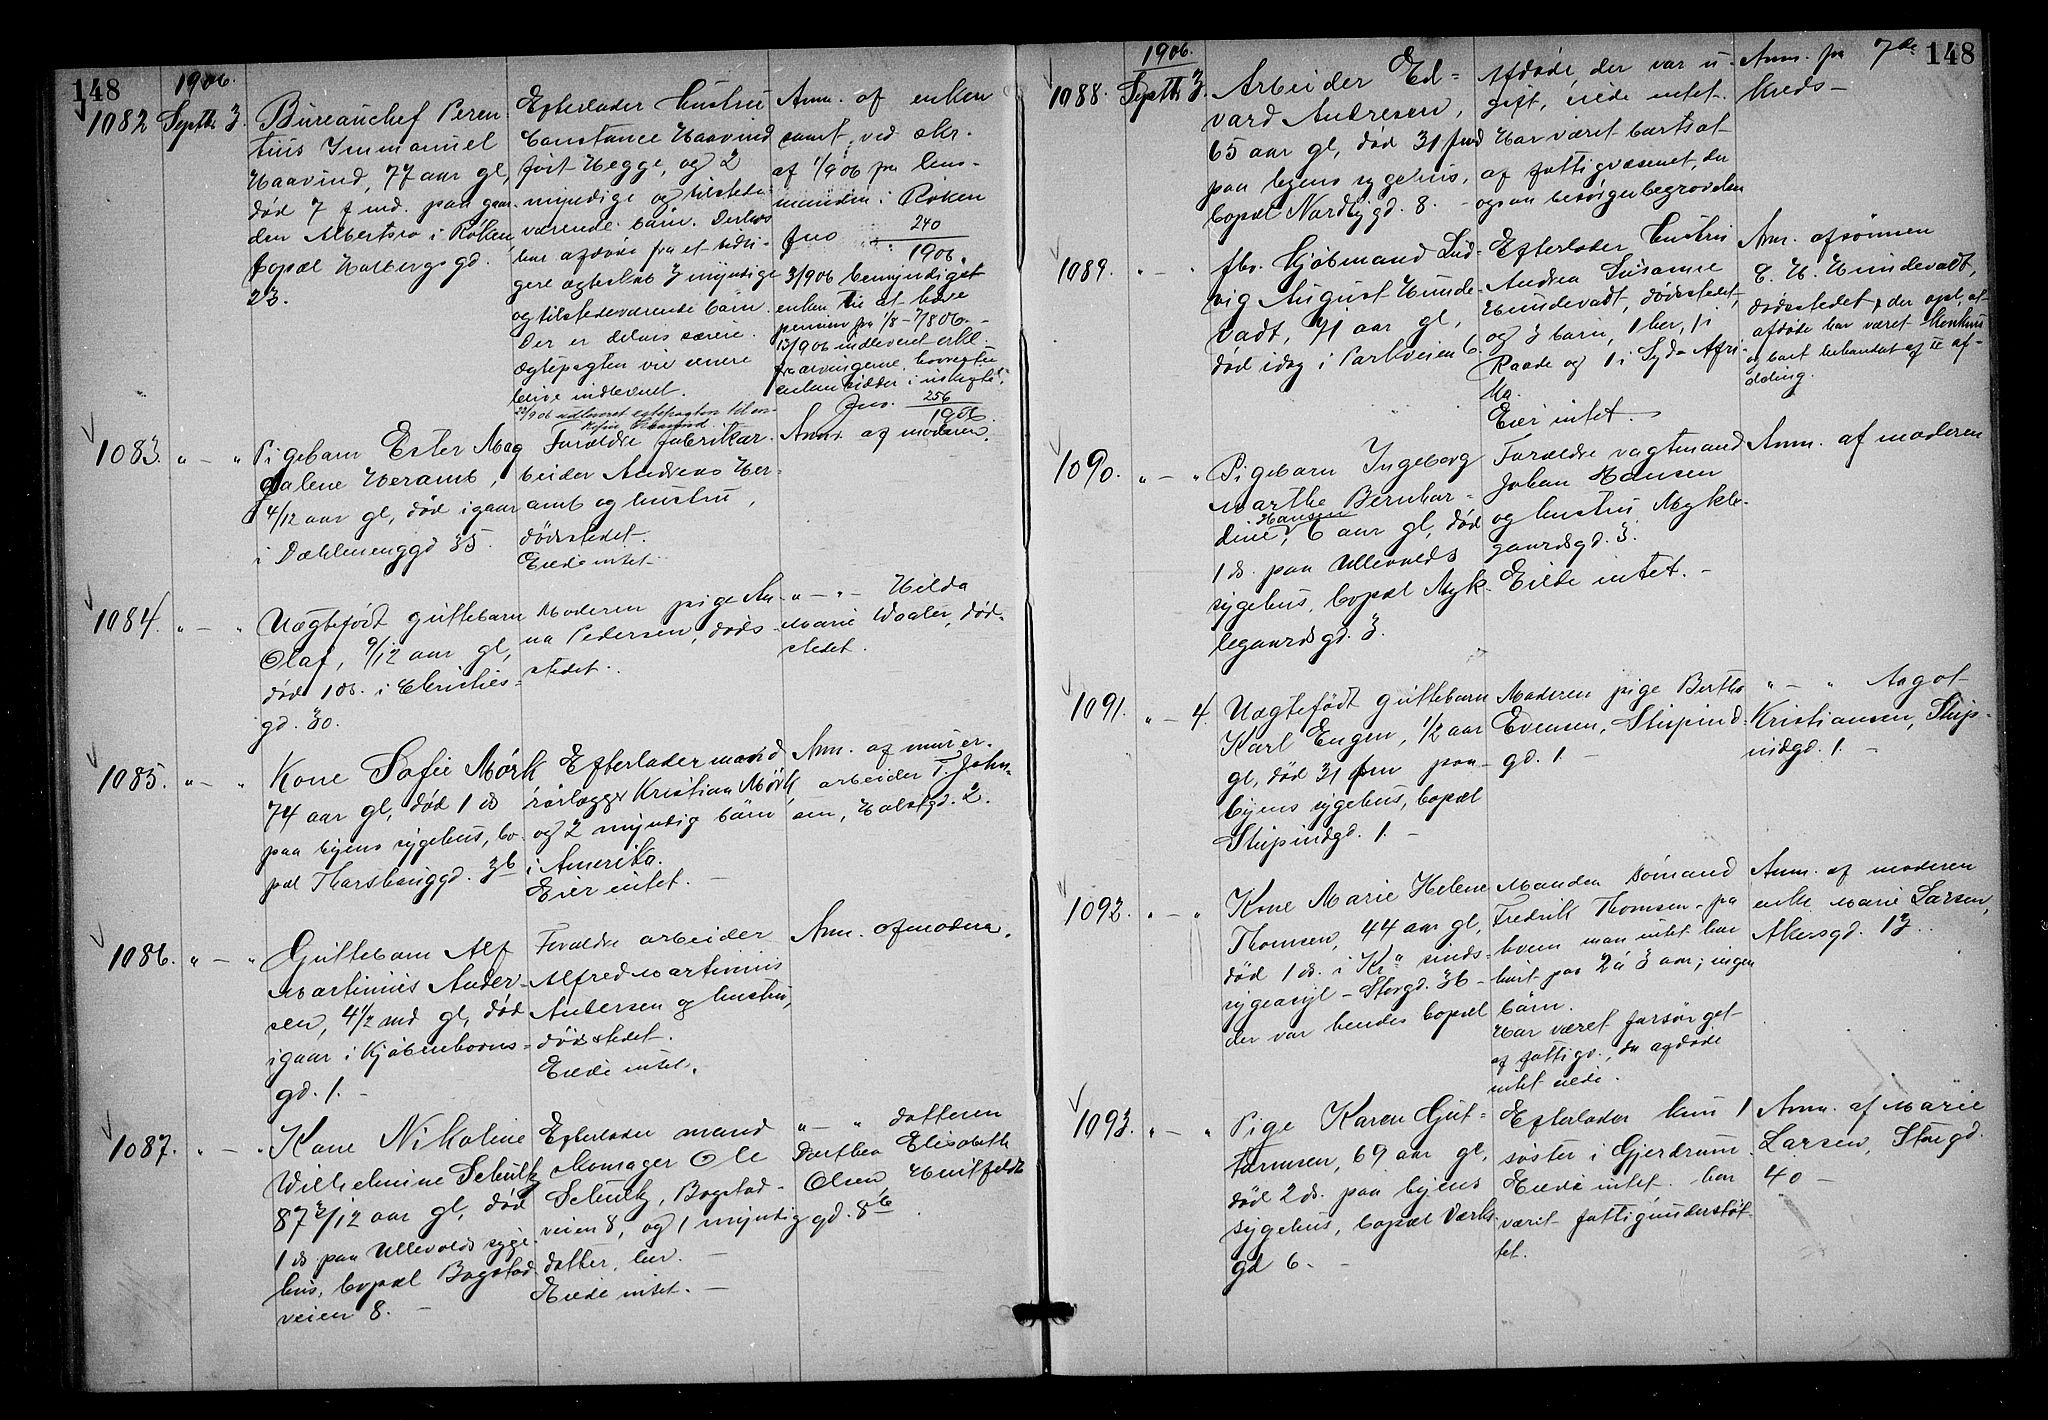 148
1906.
1082 Septbr 3.
Bureauchef Peren
tius Immanuel
Haavind, 77 aar gl,
død 7 f md. paa gaar-
den Albertsro i Røken
bopæl Holbergsgd.
23.
Efterlader hustru
Constance Haavind
født Hegge, og 2
myndige og tilstede-
værende børn. Desuden
har afdøde fra et tidli-
gere ægteskab 7 myndige
og tilstedeværende børn.
Der er delvis særeie.
Ægtepagten vil senere
blive indleveret.
Anm. af enken
samt ved skr.
af 1/9 06 fra lens-
manden i Røken
Jno 240
1906.
3/906 bemyndiget
enken til at hæve
pension fra 1/8 - 7/8 06. -
13/906 indleveret erkl.
fra arvingerne,
enken sidder i uskiftet
Jno. 256
1906.
1083. " — "
Pigebarn Ester Mag
dalene Heramb,
4/12 aar gl, død igaar
i Dæhlenenggd 35.
Forældre fabrikar-
beider Andreas Her-
amb og hustru,
dødsstedet.
Eiede intet
Anm. af moderen.
1084. " — "
Uægtefødt guttebarn
Olaf, 9/12 aar gl,
død 1 ds. i Christies-
gd. 30.
Moderen pige An-
na Pedersen, døds-
stedet.
" — " — Hilda
Marie Waaler, død-
stedet.
1085. " — "
Kone Sofie Mørk
74 aar gl, død 1 ds
paa byens sygehus, bo-
pæl Thorshauggd. 36
Efterlader mand
rørlægger Kristian Mørk,
og 2 myndig børn
i Amerika.
Eier intet. —
Anm. af murer-
arbeider T. John-
sen, Holstgd. 2.
1086. " — "
Guttebarn Alf
Martinius Ander-
sen, 4 1/2 md gl, død
igaar i Kjøbenhavns-
gd. 1. —
Forældre arbeider
Alfred Martinius
Andersen og hustru,
dødsstedet.
Eiede intet.
Anm. af moderen.
1087. " — "
Kone Nikoline
Wilhelmine Schultz
87 2/12 aar gl, død
1 ds paa Ullevolds syge-
hus, bopæl Bogstad-
veien 8. —
Efterlader mand
skomager Ole
Schultz, Bogstad-
veien 8, og 1 myndig
datter, her. —
Eiede intet. —
" — " datteren
Dorthea Elisabeth
Olsen, Huitfeldts
gd. 8 b
148
1906.
1088. Septbr 3.
Arbeider Ed-
vard Andresen,
65 aar gl, død 31 f md
paa byens sygehus,
bopæl Nordbygd. 8. -
Afdøde der var u-
gift, eiede intet.
Har været bortsat
af fattigvæsenet, der
ogsaa besørger begravelsen
Anm. fra 7de
kreds -
1089. " — "
fhv. Kjøbmand Lud-
vig August Hunde-
vadt, 71 aar gl,
død idag i Parkveien 6.
Efterlader hustru
Andrea Susanne
Hundevadt, dødsstedet,
og 3 børn, 1 her, 1 i
Raade og 1 i Syd-Afri-
ka.
Eier intet.
Anm. af sønnen
E. H. Hundevadt,
dødsstedet, der opl, at
afdøde har været konkurs
og boet behandlet af II af-
deling.
1090. " — "
Pigebarn Ingeborg
Marthe Bernhar-
dine Hansen, 6 aar gl, død
1 ds. paa Ullevolds
sygehus, bopæl Myk-
legaardsgd. 3.
Forældre vagtmand
Johan Hansen
og hustru Mykle-
gaardsgd. 3.
Eiede intet. -
Anm. af moderen
1091. " — 4.
Uægtefødt guttebarn
Karl Eugen, 1/2 aar
gl, død 31 f m paa
byens sygehus, bopæl
Stupindgd. 1. -
Moderen pige Bertha
Evensen, Stupind-
gd. 1. -
" — " Aagot
Kristiansen, Stup-
indgd. 1. -
1092. " — "
Kone Marie Helene
Thomsen, 44 aar gl,
død 1 ds. i Kra sinds-
sygeasyl - Storgd. 36 -
der var hendes bopæl
Manden sømand
Fredrik Thomsen - paa
hvem man intet har
hørt paa 2 à 3 aar; ingen
børn.
Har været forsørget
af fattigv., da afdøde
intet eiede.
Anm. af moderen
enke Marie Larsen,
Akersgd. 13.
1093. " — "
Pige Karen Gut-
tormsen, 69 aar gl,
død 2 ds. paa byens
sygehus, bopæl Værks-
gd 6. -
Efterlader kun 1
søster i Gjerdrum.
Eiede intet. har
været fattigunderstøt-
tet.
Anm. af Marie
Larsen, Storgd.
40 -